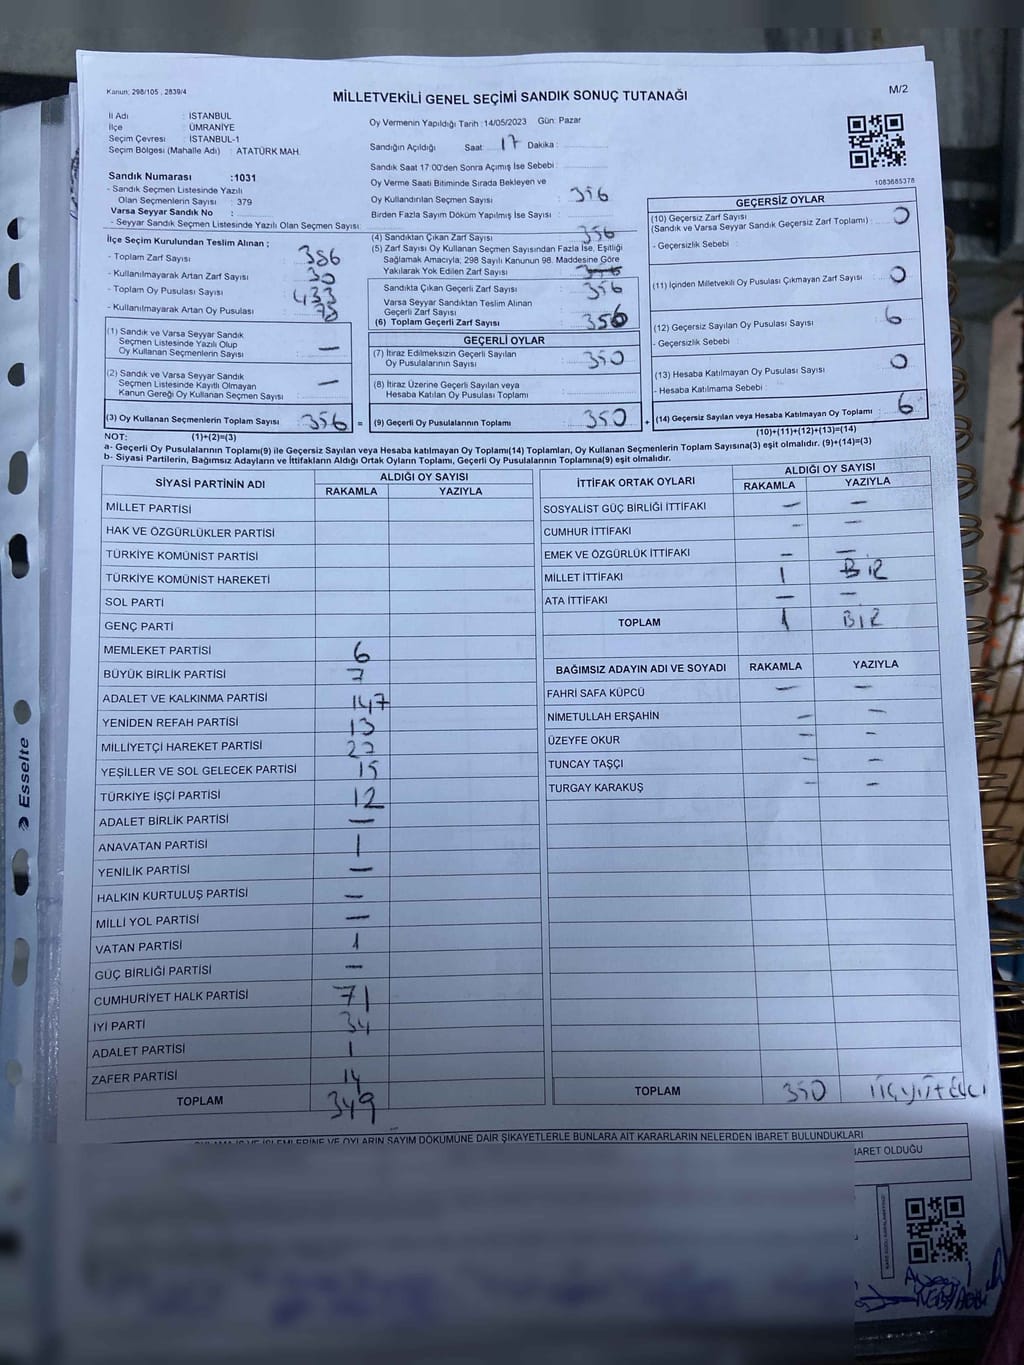 Kanun; 298/105 , 2839/4
MİLLETVEKİLİ GENEL SEÇİMİ SANDIK SONUÇ TUTANAĞI
M/2
İl Adı : İSTANBUL
İlçe : ÜMRANİYE
Seçim Çevresi : İSTANBUL-1
Seçim Bölgesi (Mahalle Adı) : ATATÜRK MAH.
Oy Vermenin Yapıldığı Tarih : 14/05/2023 Gün: Pazar
Sandığın Açıldığı Saat 17 Dakika :
Sandık Saat 17:00'den Sonra Açımış İse Sebebi :
Oy Verme Saati Bitiminde Sırada Bekleyen ve
Oy Kullandırılan Seçmen Sayısı : 356
Birden Fazla Sayım Döküm Yapılmış İse Sayısı :
1083685378
Sandık Numarası :1031
- Sandık Seçmen Listesinde Yazılı
Olan Seçmenlerin Sayısı : 379
Varsa Seyyar Sandık No :
- Seyyar Sandık Seçmen Listesinde Yazılı Olan Seçmen Sayısı:
İlçe Seçim Kurulundan Teslim Alınan ;
- Toplam Zarf Sayısı : 386
- Kullanılmayarak Artan Zarf Sayısı : 30
- Toplam Oy Pusulası Sayısı : 433
- Kullanılmayarak Artan Oy Pusulası : 78
(1) Sandık ve Varsa Seyyar Sandık
Seçmen Listesinde Yazılı Olup
Oy Kullanan Seçmenlerin Sayısı : —
(2) Sandık ve Varsa Seyyar Sandık
Seçmen Listesinde Kayıtlı Olmayan
Kanun Gereği Oy Kullanan Seçmen Sayısı : —
(3) Oy Kullanan Seçmenlerin Toplam Sayısı : 356
(1)+(2)=(3)
(4) Sandıktan Çıkan Zarf Sayısı : 356
(5) Zarf Sayısı Oy Kullanan Seçmen Sayısından Fazla İse, Eşitliği
Sağlamak Amacıyla; 298 Sayılı Kanunun 98. Maddesine Göre
Yakılarak Yok Edilen Zarf Sayısı :
Sandıkta Çıkan Geçerli Zarf Sayısı : 356
Varsa Seyyar Sandıktan Teslim Alınan
Geçerli Zarf Sayısı :
(6) Toplam Geçerli Zarf Sayısı : 356
GEÇERLİ OYLAR
(7) İtiraz Edilmeksizin Geçerli Sayılan
Oy Pusulalarının Sayısı : 350
(8) İtiraz Üzerine Geçerli Sayılan veya
Hesaba Katılan Oy Pusulası Toplamı :
= (9) Geçerli Oy Pusulalarının Toplamı : 350
GEÇERSİZ OYLAR
(10) Geçersiz Zarf Sayısı : 0
(Sandık ve Varsa Seyyar Sandık Geçersiz Zarf Toplamı)
- Geçersizlik Sebebi :
(11) İçinden Milletvekili Oy Pusulası Çıkmayan Zarf Sayısı : 0
(12) Geçersiz Sayılan Oy Pusulası Sayısı : 6
- Geçersizlik Sebebi :
(13) Hesaba Katılmayan Oy Pusulası Sayısı : 0
- Hesaba Katılmama Sebebi :
+ (14) Geçersiz Sayılan veya Hesaba Katılmayan Oy Toplamı : 6
(10)+(11)+(12)+(13)=(14)
NOT:
a- Geçerli Oy Pusulalarının Toplamı(9) ile Geçersiz Sayılan veya Hesaba katılmayan Oy Toplamı(14) Toplamları, Oy Kullanan Seçmenlerin Toplam Sayısına(3) eşit olmalıdır. (9)+(14)=(3)
b- Siyasi Partilerin, Bağımsız Adayların ve İttifakların Aldığı Ortak Oyların Toplamı, Geçerli Oy Pusulalarının Toplamına(9) eşit olmalıdır.
SİYASİ PARTİNİN ADI ALDIĞI OY SAYISI
RAKAMLA YAZIYLA
MİLLET PARTİSİ
HAK VE ÖZGÜRLÜKLER PARTİSİ
TÜRKİYE KOMÜNİST PARTİSİ
TÜRKİYE KOMÜNİST HAREKETİ
SOL PARTİ
GENÇ PARTİ
MEMLEKET PARTİSİ 6
BÜYÜK BİRLİK PARTİSİ 7
ADALET VE KALKINMA PARTİSİ 147
YENİDEN REFAH PARTİSİ 13
MİLLİYETÇİ HAREKET PARTİSİ 27
YEŞİLLER VE SOL GELECEK PARTİSİ 15
TÜRKİYE İŞÇİ PARTİSİ 12
ADALET BİRLİK PARTİSİ —
ANAVATAN PARTİSİ 1
YENİLİK PARTİSİ —
HALKIN KURTULUŞ PARTİSİ —
MİLLİ YOL PARTİSİ —
VATAN PARTİSİ 1
GÜÇ BİRLİĞİ PARTİSİ —
CUMHURİYET HALK PARTİSİ 71
İYİ PARTİ 34
ADALET PARTİSİ 1
ZAFER PARTİSİ 14
TOPLAM 349
İTTİFAK ORTAK OYLARI ALDIĞI OY SAYISI
RAKAMLA YAZIYLA
SOSYALİST GÜÇ BİRLİĞİ İTTİFAKI — —
CUMHUR İTTİFAKI — —
EMEK VE ÖZGÜRLÜK İTTİFAKI — —
MİLLET İTTİFAKI 1 BİR
ATA İTTİFAKI — —
TOPLAM 1 BİR
BAĞIMSIZ ADAYIN ADI VE SOYADI RAKAMLA YAZIYLA
FAHRİ SAFA KÜPCÜ — —
NİMETULLAH ERŞAHİN — —
ÜZEYFE OKUR — —
TUNCAY TAŞÇI — —
TURGAY KARAKUŞ — —
TOPLAM 350
OYLARIN SAYIM DÖKÜMÜNE DAİR ŞİKAYETLERLE BUNLARA AİT KARARLARIN NELERDEN İBARET BULUNDUKLARI
İBARET OLDUĞU
Esselte